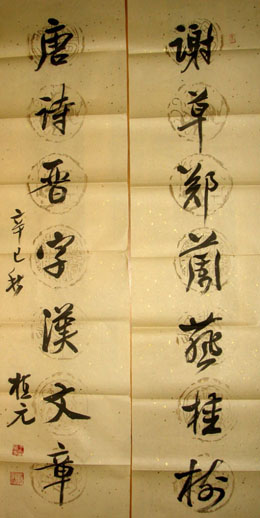 谢草郑蘭燕桂树
唐诗晋字漢文章
辛巳秋
植元